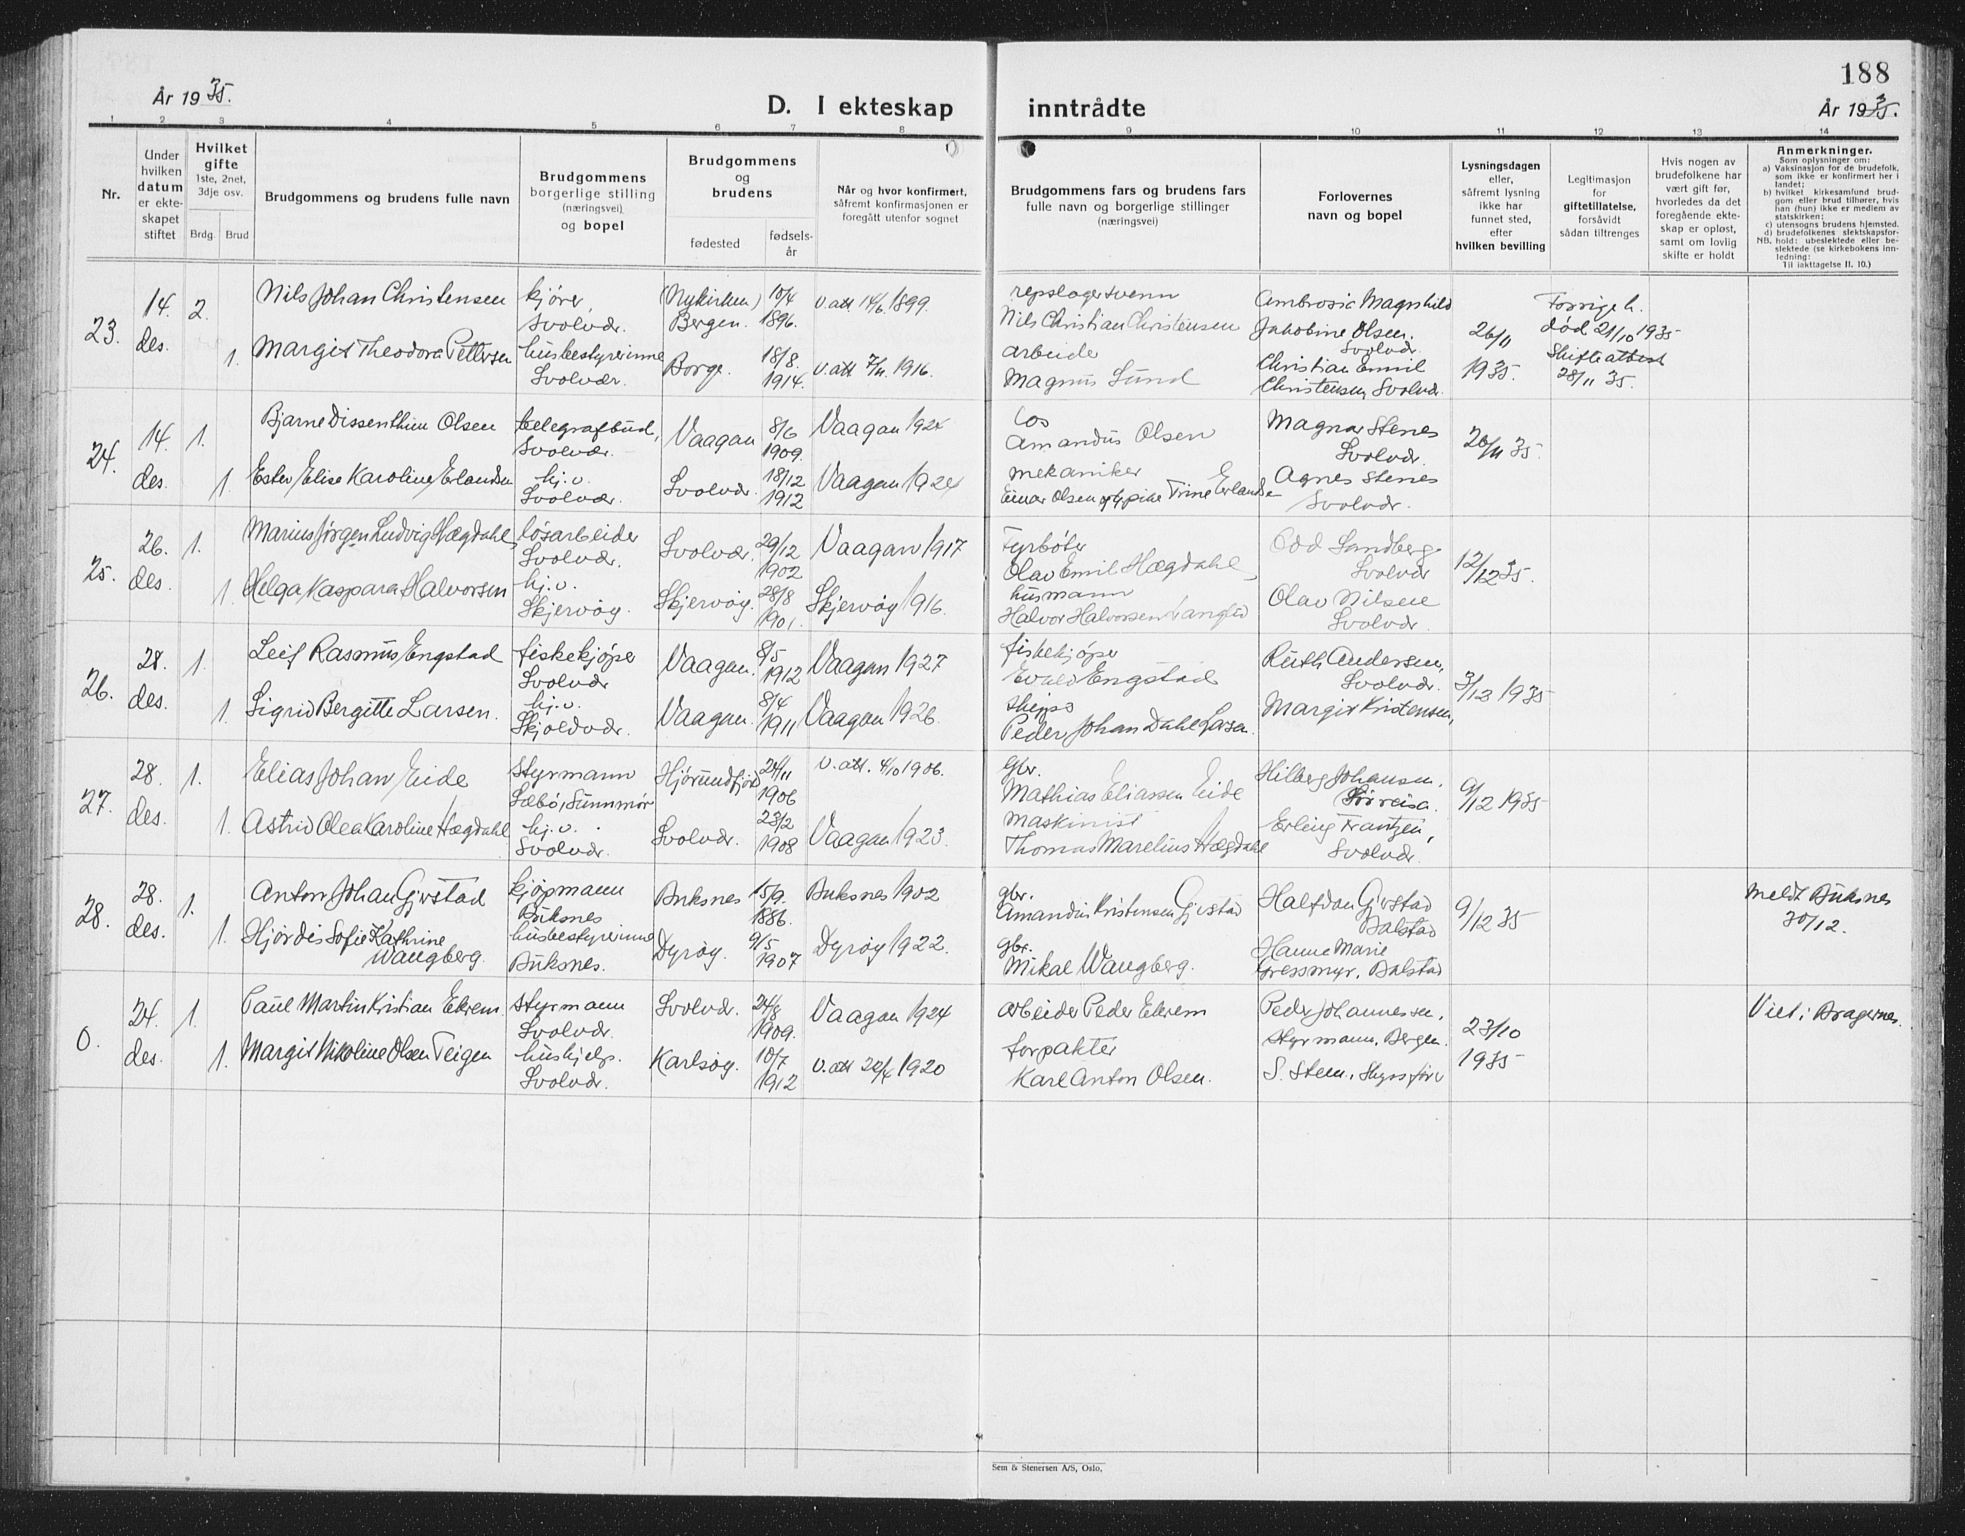 188
År 1935.
D. I ekteskap inntrådte
År 1935.
1 2 3 4 5 6 7 8 9 10 11 12 13 14
Nr.
Under hvilken datum er ekteskapet stiftet
Hvilket gifte 1ste, 2net, 3dje osv.
Brdg. Brud
Brudgommens og brudens fulle navn
Brudgommens borgerlige stilling (næringsvei) og bopel
Brudgommens og brudens
fødested
fødselsår
Når og hvor konfirmert, såfremt konfirmasjonen er foregått utenfor sognet
Brudgommens fars og brudens fars fulle navn og borgerlige stillinger (næringsvei)
Forlovernes navn og bopel
Lysningsdagen eller, såfremt lysning ikke har funnet sted, efter hvilken bevilling
Legitimasjon for giftetillatelse, forsåvidt sådan tiltrenges
Hvis nogen av brudefolkene har vært gift før, hvorledes da det foregående ekteskap er opløst, samt om lovlig skifte er holdt
Anmerkninger.
Som oplysninger om:
a) Vaksinasjon for de brudefolk, som ikke er konfirmert her i landet;
b) hvilket kirkesamfund brudgom eller brud tilhører, hvis han (hun) ikke er medlem av statskirken;
c) utensogns brudens hjemsted.
d) brudefolkenes slektskapsforhold: ubeslektede eller beslektede (se kirkebokens innledning:
NB. Til iakttagelse II. 10.)
23. 14. des. 2. Nils Johan Christensen kjører, Svolvær. (Nykirken) Bergen. 10/4 1896. v. att 14/6 1899. repslagersvenn Nils Christian Christensen Ambrosia Magnhild Jakobine Olsen. Svolvær 26/11 1935. Forrige h. død 21/10 1935 Skifteattest 28/11 35.
1. Margit Theodora Pettersen husbestyrerinne Svolvær. Borge. 18/8. 1914. v. att 7/11. 1916. arbeider Magnus Lund Christian Emil Christensen, Svolvær.
24. 14. des. 1. Bjarne Dissenthun Olsen telegrafbud, Svolvær. Vaagan 8/6 1909. Vaagan 1924 los Amandus Olsen Magnar Stenes Svolvær. 26/11 35.
1. Ester Elise Karoline Erlandsen hj. v. Svolvær. Svolvær. 18/12 1912 Vaagan 1924 mekaniker Einar Olsen og pike Trine Erlandsen Agnes Stenes Svolvær.
25. 26. des. 1. Marius Jørgen Ludvig Hægdahl, løsarbeider Svolvær. Svolvær. 29/12 1902 Vaagan 1917 Fyrbøter Olav Emil Hægdahl, Odd Sandberg Svolvær 12/12 35.
1. Helga Kaspara Halvorsen hj. v. Skjervøy. Skjervøy. 28/8 1901. Skjervøy 1916. husmann Halvor Halvorsen Langlid Olav Nilsen Svolvær.
26. 28. des. 1. Leif Rasmus Engstad fiskekjøper Svolvær Vaagan. 8/5 1912 Vaagan 1927 fiskekjøper Evald Engstad Ruth Andersen, Svolvær. 3/12 1935
1. Sigrid Bergitte Larsen. hj. v. Skjoldvær. Vaagan. 8/4 1911 Vaagan 1926. Peder Johan Dahl Larsen Margit Kristensen,
27. 28. des. 1. Elias Johan Eide Styrmann Sæbø, Sunnmør Hjørundfjord 24/11 1906 v. att. 4/10 1906. Gbr. Mathias Eliassen Eide Hilberg Johansen, Sørreisa. 9/12 1935
1. Astrid Olea Karoline Hægdahl hj. v. Svolvær. Svolvær. 23/2 1908 Vaagan 1923. Maskinist Thomas Marelius Hægdahl Erling Frantzen, Svolvær.
28. 28. des. 1. Anton Johan Gjerstad kjøpmann Buksnes Buksnes 15/9. 1886. Buksnes 1902 gbr. Amandus Kristensen Gjerstad Halfdan Gjerstad Balstad 9/12 35 Meldt Buksnes 30/12.
1. Hjørdis Sofie Kathrine Wangberg. husbestyrerinne Buksnes. Dyrøy. 9/5 1907 Dyrøy 1922. gbr. Mikal Wangberg. Hanne Marie Gressmyr, Balstad
0. 24. des. 1. Paul Martin Kristian Ekrem. Styrmann Svolvær. Svolvær. 24/8 1909. Vaagan 1924 arbeider Peder Ekrem Peder Johannessen, Styrmann, Bergen. 23/10 1935 Viet i Bragernes.
1. Margit Nikoline Olsen Teigen hushjelp. Svolvær. Karlsøy. 10/7 1912 v. att 20/4 1920 forpakter Karl Anton Olsen. S. Steen,
Sem & Stenersen A/S, Oslo.